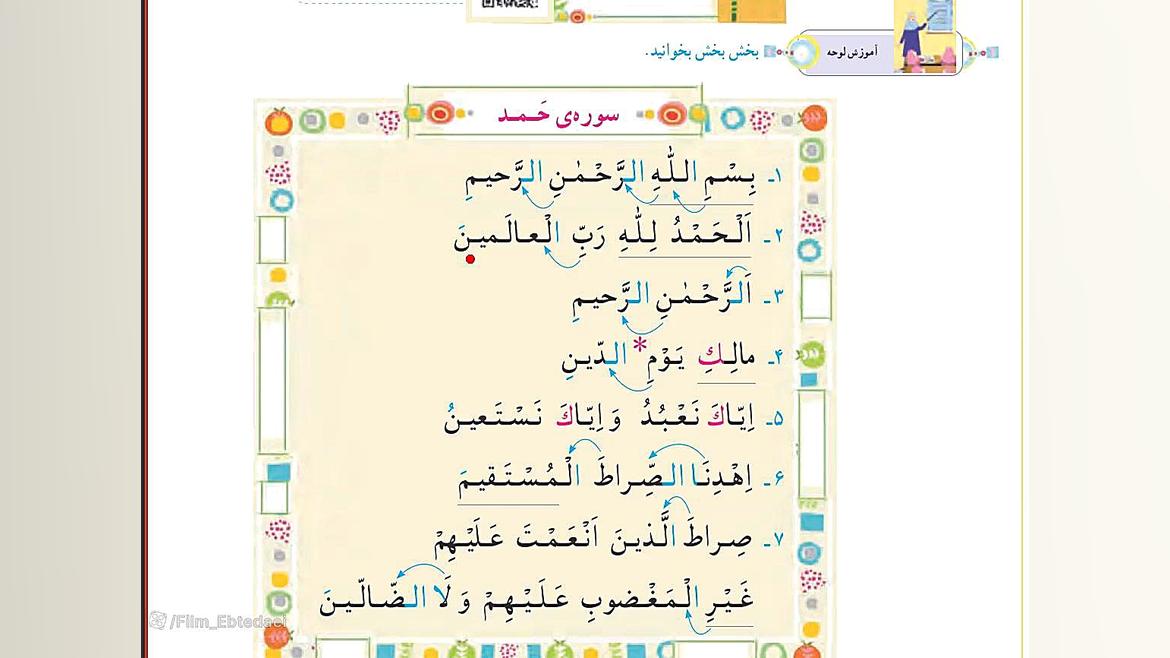 آموزش لوحه
بخش بخش بخوانید.
سوره‌ی حَمد
۱ـ بِسْمِ اللّٰهِ الرَّحْمٰنِ الرَّحیمِ
۲ـ اَلْحَمْدُ لِلّٰهِ رَبِّ الْعالَمینَ
۳ـ اَلرَّحْمٰنِ الرَّحیمِ
۴ـ مالِكِ یَوْمِ * الدّینِ
۵ـ اِیّاكَ نَعْبُدُ وَ اِیّاكَ نَسْتَعینُ
۶ـ اِهْدِنَا الصِّراطَ الْمُسْتَقیمَ
۷ـ صِراطَ الَّذینَ اَنْعَمْتَ عَلَیْهِمْ
غَیْرِ الْمَغْضوبِ عَلَیْهِمْ وَ لَا الضّالّینَ
/Film_Ebtedaei